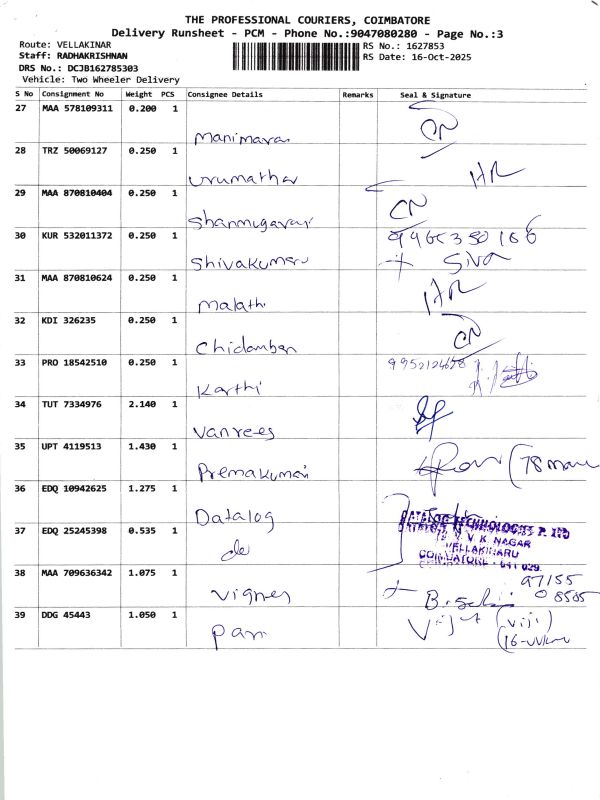 THE PROFESSIONAL COURIERS, COIMBATORE
Delivery Runsheet - PCM - Phone No.:9047080280 - Page No.:3
Route: VELLAKINAR
Staff: RADHAKRISHNAN
DRS No.: DCJB162785303
Vehicle: Two Wheeler Delivery
RS No.: 1627853
RS Date: 16-Oct-2025
S No Consignment No Weight PCS Consignee Details Remarks Seal & Signature
27 MAA 578109311 0.200 1 Manimaran CN
28 TRZ 50069127 0.250 1 HR
29 MAA 870810404 0.250 1 CN
30 KUR 532011372 0.250 1 Shivakumaru Siva
31 MAA 870810624 0.250 1 Malathi HR
32 KDI 326235 0.250 1 Chidamban CN
33 PRO 18542510 0.250 1 Karthi
34 TUT 7334976 2.140 1 Vanrees
35 UPT 4119513 1.430 1 Premakumari
36 EDQ 10942625 1.275 1 Datalog
37 EDQ 25245398 0.535 1 do
DATALOG TECHNOLOGIES P. LTD
V. K. NAGAR
VELLAKINARU
COIMBATORE - 641 029.
38 MAA 709636342 1.075 1 Vignes 97155
08585
39 DDG 45443 1.050 1 Pavi (Viji)